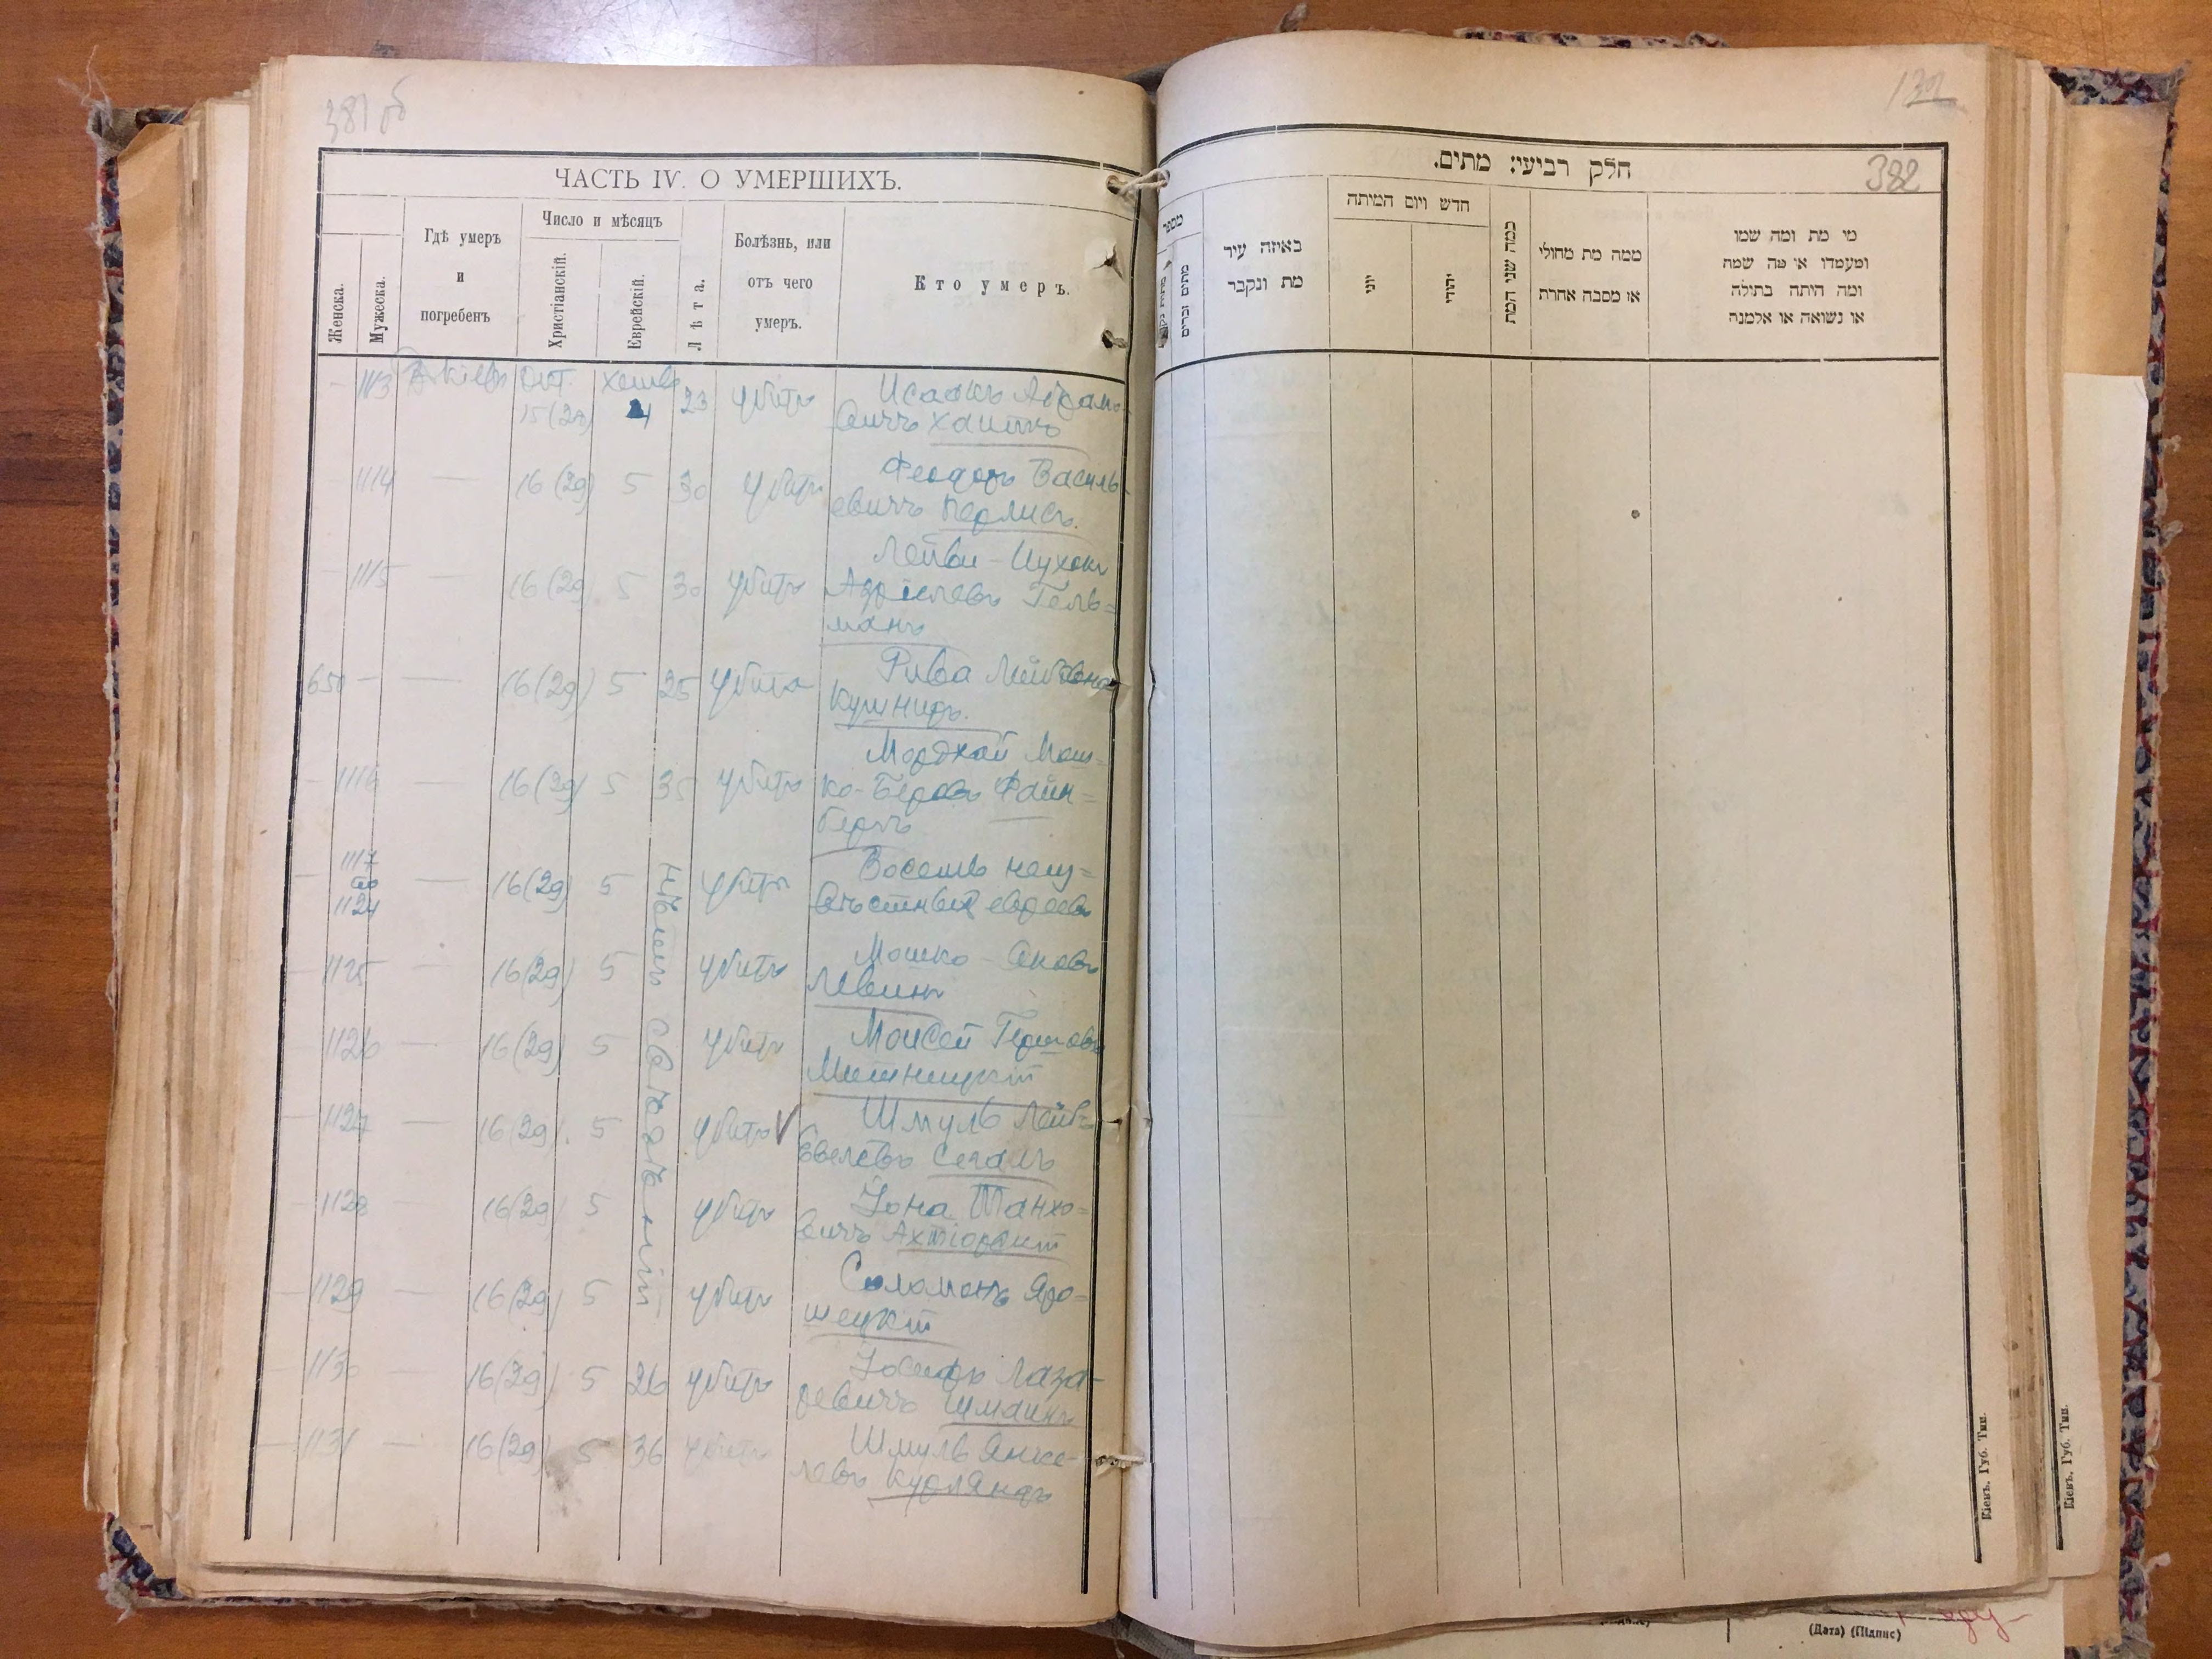 381 об
ЧАСТЬ IV. О УМЕРШИХЪ.
Женска.
Мужеска.
Гдѣ умеръ
и
погребенъ
Число и мѣсяцъ
Христіанскій.
Еврейскій.
Лѣта.
Болѣзнь, или
отъ чего
умеръ.
Кто умеръ.
1113 Окт. 23 убитъ Исаакъ
15(28) 4
— 1114 — 16(29) 5 30 убитъ Феодоръ Василь-
евичъ Перлисъ.
— 1115 — 16(29) 5 30 убитъ Лейви-Ицхокъ
Гель=
манъ
650 — — 16(29) 5 25 убита Рива Лейбовна
Кушниръ.
— 1116 — 16(29) 5 35 убитъ Мордхай Мош=
ко-Беровъ Файн=
бергъ
— 1117 по 1124 — 16(29) 5 убитъ Восемь неиз=
вѣстныхъ евреевъ
— 1125 — 16(29) 5 убитъ Мошко-Яковъ
Левинъ
1126 — 16(29) 5 убитъ Моисей Гершовъ
— 1127 — 16(29) 5 убитъ V Шмуль Лейб=
Евелевъ Сегалъ
— 1128 — 16(29) 5 убитъ Іона Танхо=
вичъ
— 1129 — 16(29) 5 убитъ Соломонъ Яро=
шецкій
— 1130 — 16(29) 5 26 убитъ Іосифъ Лаза-
ревичъ Шмаинъ
— 1131 — 16(29) 5 36 убитъ Шмуль Янке-
левъ Курляндъ
нѣтъ свѣдѣній
382
חלק רביעי: מתים.
מספר
מתים זכרים
באיזה עיר
מת ונקבר
חדש ויום המיתה
יוני
יהודי
כמה שני המת
ממה מת מחולי
או מסבה אחרת
מי מת ומה שמו
ומעמדו או מה שמה
ומה היתה בתולה
או נשואה או אלמנה
Кіевъ. Губ. Тип.
Кіевъ. Губ. Тип.
(Дата) (Підпис)